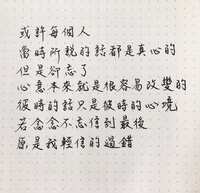 或許每個人
當時所說的話都是真心的
但是卻忘了
心意本來就是很容易改變的
彼時的話只是彼時的心境
若念念不忘信到最後
原是我輕信的過錯